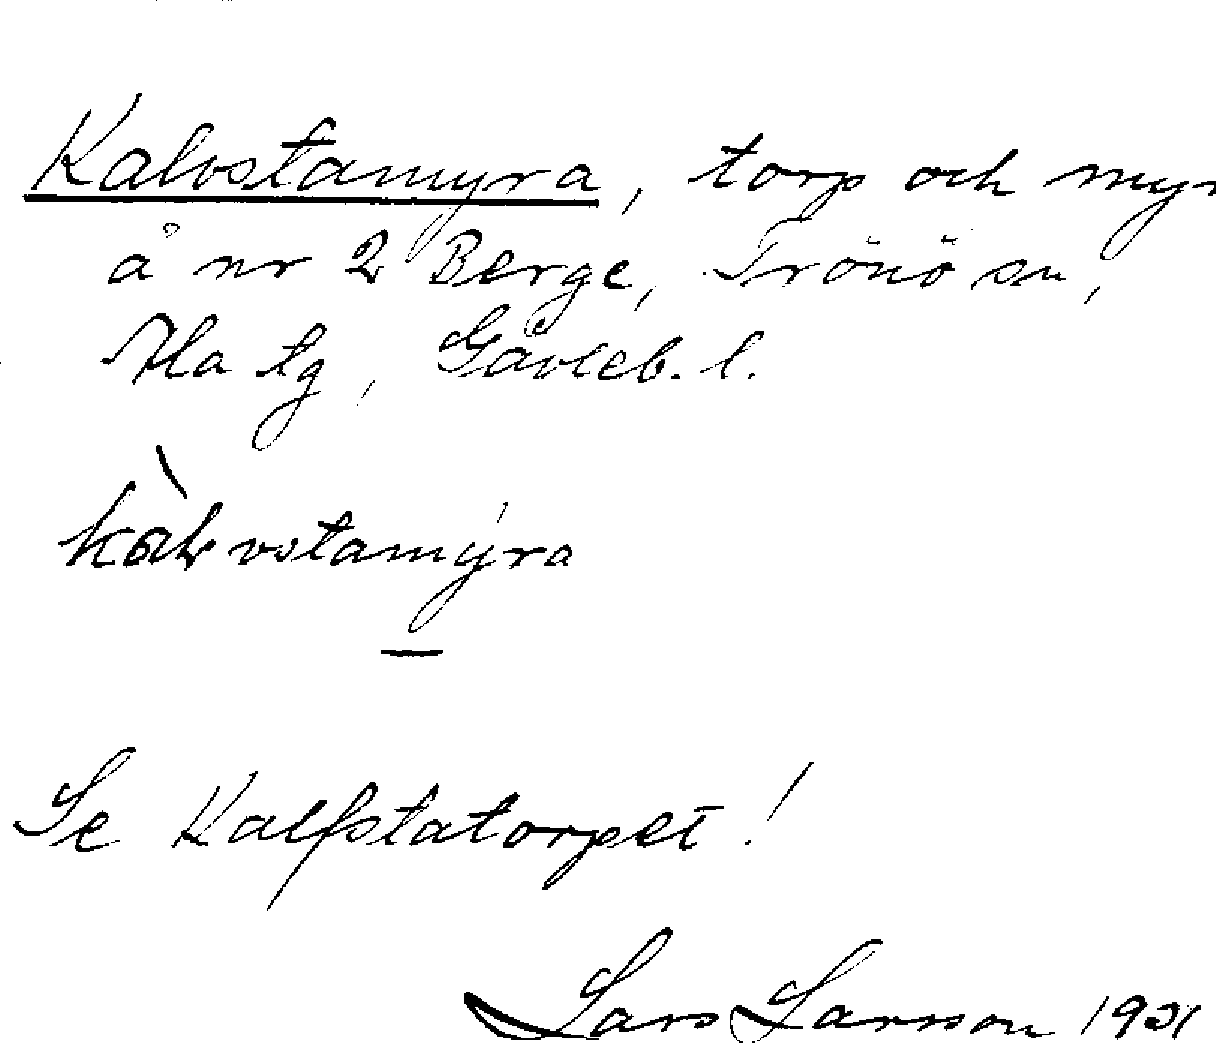 Kalvstamyra, torp och myr
å nr 2 Berge, Trönö sn,
Ala tg, Gävleb. l.
kàlvstamýra
Se Kalfstatorpet!
Lars Larsson 1931